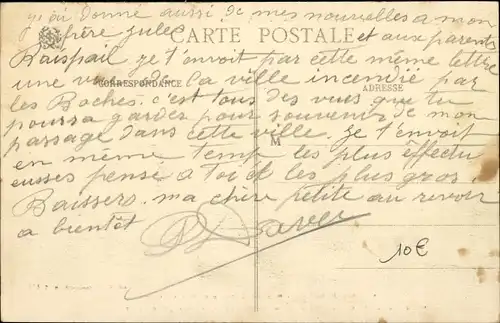 j'ai donné aussi de mes nouvelles a mon
frère jules et aux parents
CARTE POSTALE
Baispail je t'envoit par cette même lettre
une vue de la ville incendié par
CORRESPONDANCE
ADRESSE
les Boches. c'est tous des vues que tu
pourra gardes pour souvenir de mon
passage dans cette ville. je t'envoit
M
en même temps les plus éffectu
eusses pensé a toi et les plus gros
Baissers. ma chère petite au revoir
a bientôt
10€